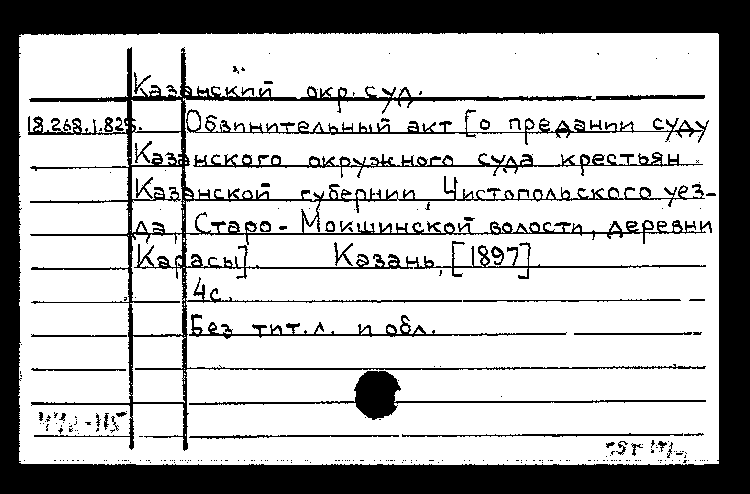 Казанский окр. суд.
18.268.1.825. Обвинительный акт [о предании суду
Казанского окружного суда крестьян
Казанской губернии, Чистопольского уез-
да, Старо-Мокшинской волости, деревни
Карасы]. Казань, [1897]
4с.
Без тит.л. и обл.